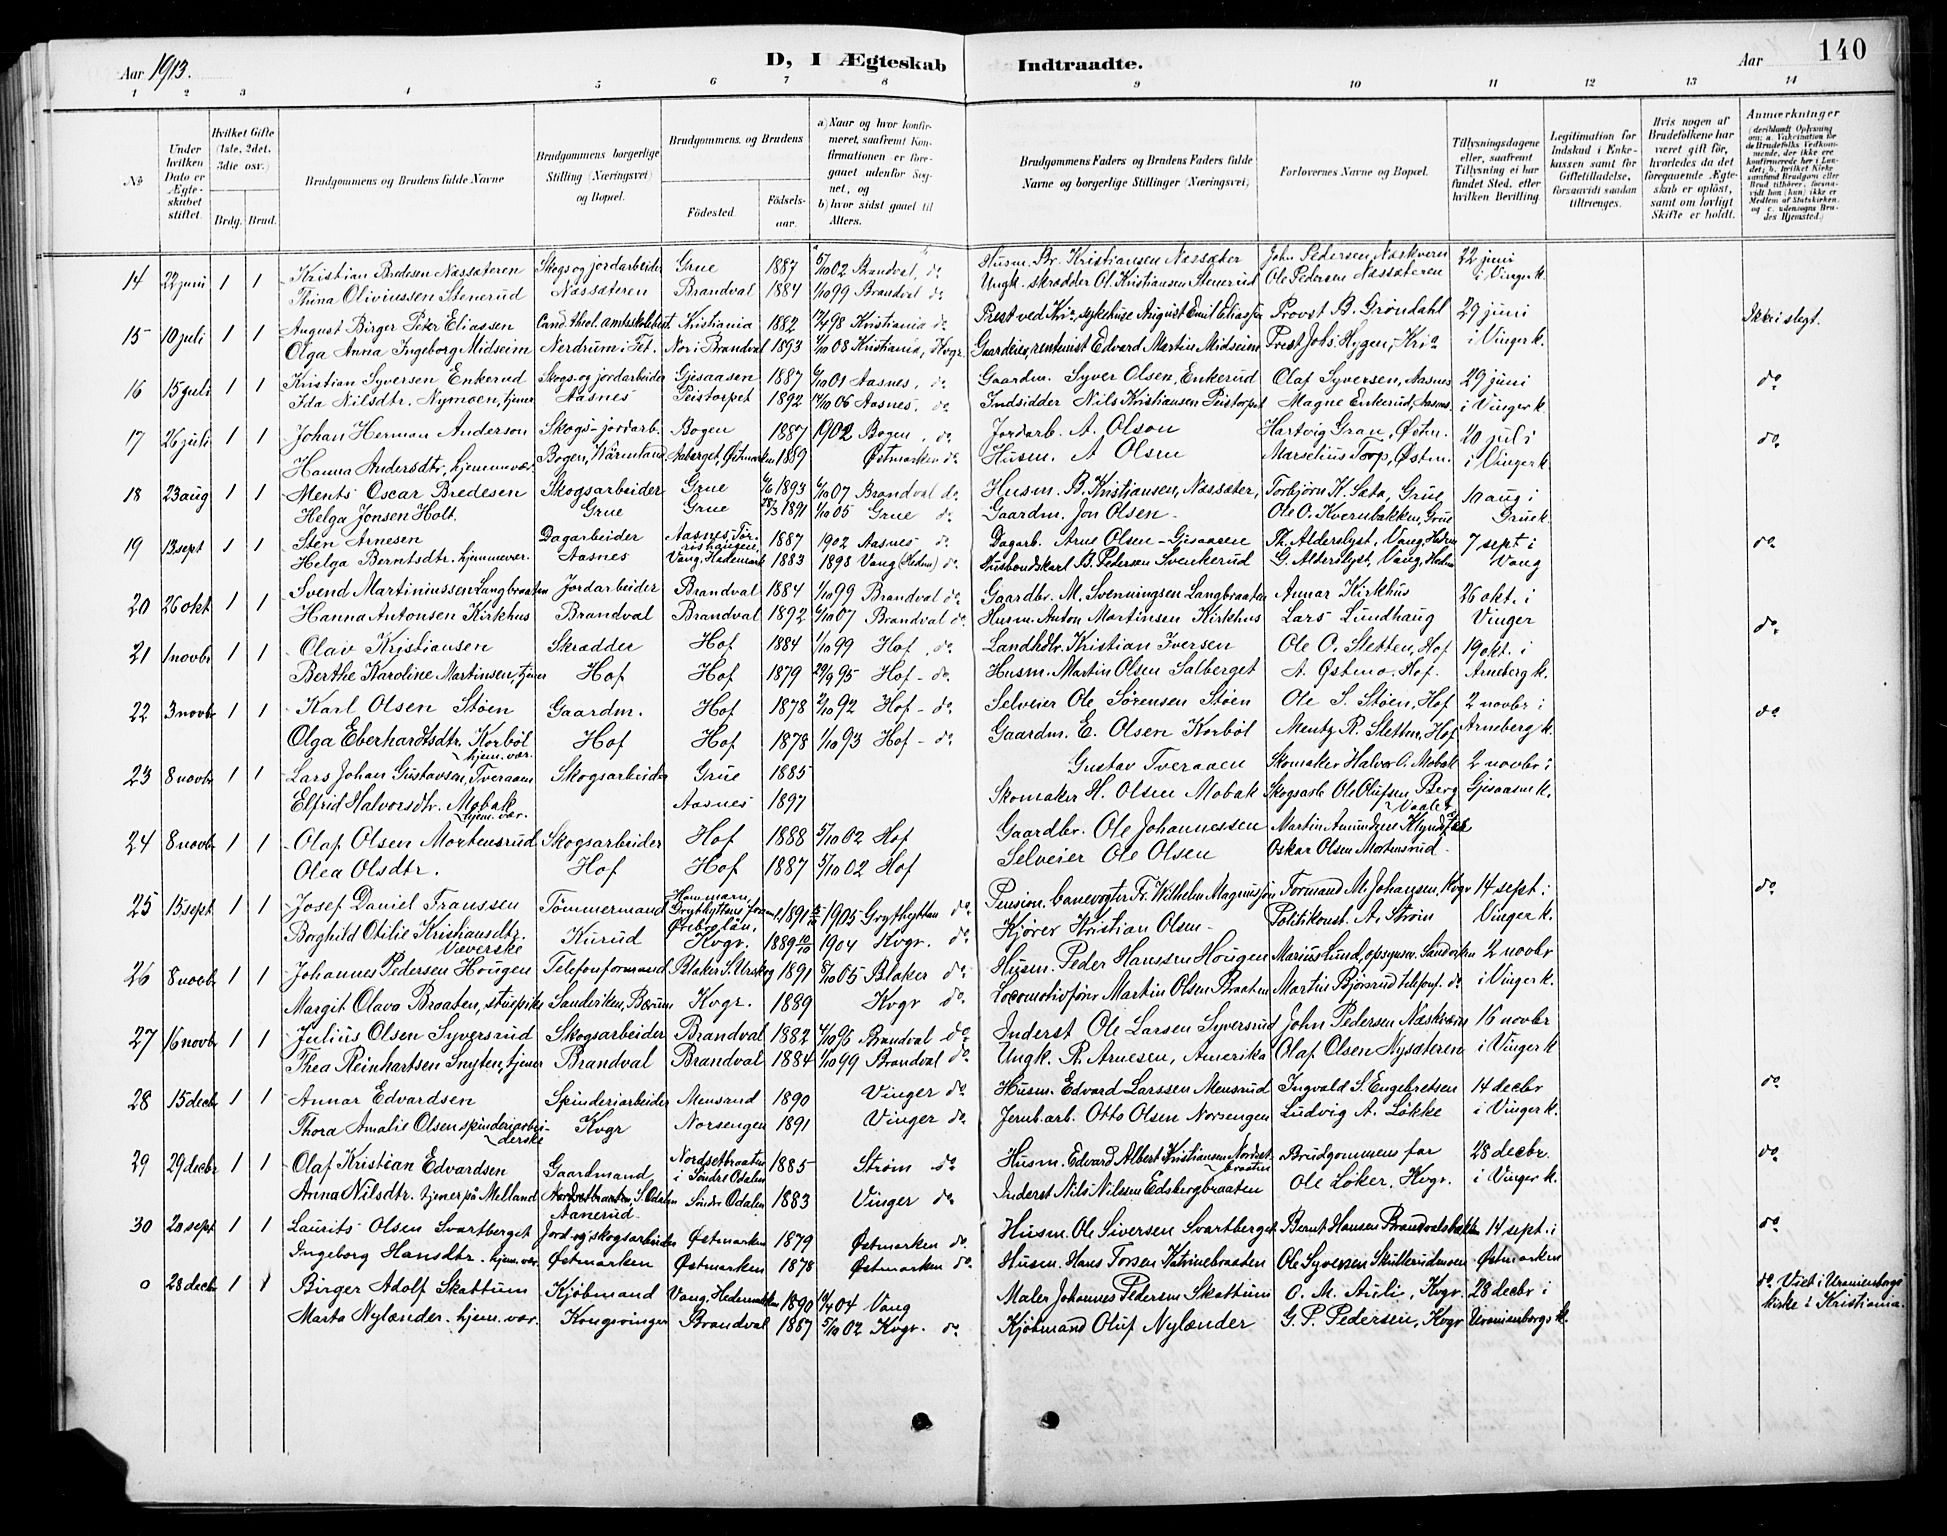 Aar 1913.
D, I Ægteskab Indtraadte.
Aar 140
1 2 3 4 5 6 7 8 9 10 11 12 13 14
No
Under hvilken Dato er Ægteskabet stiftet.
Hvilket Gifte (1ste, 2det, 3die osv.)
Brdg. Brud.
Brudgommens og Brudens fulde Navne
Brudgommens borgerlige Stilling (Næringsvei) og Bopæl.
Brudgommens og Brudens
Fødested.
Fødselsaar.
a) Naar og hvor konfirmeret, saafremt Konfirmationen er foregaaet udenfor Sognet, og
b) hvor sidst gaaet til Alters.
Brudgommens Faders og Brudens Faders fulde Navne og borgerlige Stillinger (Næringsvei)
Forlovernes Navne og Bopæl.
Tillysningsdagene eller, saafremt Tillysning ei har fundet Sted, efter hvilken Bevilling.
Legitimation for Indskud i Enkekassen samt for Giftetilladelse, forsaavidt saadan tiltrænges.
Hvis nogen af Brudefolkene har været gift før, hvorledes da det foregaaende Ægteskab er opløst, samt om lovligt Skifte er holdt.
Anmerkninger
14 22 juni 1 1 Kristian Bredesen Næssæteren Skogs og jordarbeider Grue 1887 5/10 02 Brandval, do Husm. Br. Kristiansen Næssæter John Pedersen, Næskvern 22 juni
Thina Oliviussen Stenerud Næssæteren Brandval 1884 1/10 99 Brandval do Ungk. skrædder Ol. Kristiansen Stenerud Ole Pedersen Næssæteren i Vinger k.
15 10 juli 1 1 August Birger Peter Eliassen Cand. theol. amtsskolebest. Kristiania 1882 98 Kristiania do Prest ved Kr.a sykehuse August Emil Eliassen Provst B. Grøndahl 29 juni Ikke i slegt.
Olga Anna Ingeborg Midseim Nerdrum i Fet. Nor i Brandval 1893 1/10 08 Kristiania, Kvgr. Gaardeier, rentenist Edvard Martin Midseim Prest Johs. Hygen, Kr.a i Vinger k.
16 15 juli 1 1 Kristian Syversen Enkerud Skogs- og jordarbeider Gjesaasen 1887 6/10 01 Aasnes, do Gaardm. Syver Olsen, Enkerud Olaf Syversen, Aasnes 29 juni do
Ida Nilsdtr. Nymoen, tjener Aasnes Peistorpet 1892 14/10 06 Aasnes, do Indsidder Nils Kristiansen Peistorpet Magne Enkerud, Aasns. i Vinger k.
17 26 juli 1 1 Johan Herman Anderson Skogs-jordarb. Bogen 1887 1902 Bogen, do Jordarb. A. Olson Hartvig Gran, Østm. 20 juli do
Hanna Andersdtr, hjemmevær. Bogen, Wärmland Aaberget, Østmarken 1889 Østmarken do Husm. A Olsen Marselius Torp, Østm. i Vinger k.
18 23 aug 1 1 Ments Oscar Bredesen Skogsarbeider Grue 6/6 1893 6/10 07 Brandval do Husm. B. Kristiansen, Næssæter, Torbjørn K. Sæta, Grue 10 aug i
Helga Jonsen Holt. Grue Grue 1891 1/10 05 Grue do Gaardm. Jon Olsen - Ole O. Kvernbakken, Grue Grue k.
19 13 sept 1 1 Sten Arnesen Dagarbeider Aasnes, Torishaugene 1887 1902 Aasnes do Dagarb. Arne Olsen - Gjesaasen Th. Alderslyst, Vang, Hedm 7 sept i do
Helga Berntsdtr, hjemmevær. Aasnes Vang, Hedemark 1883 1898 Vang (Hedm) do Husbondskarl B. Pedersen Svenkerud G. Alderslyst, Vang, Hedm Vang
20 26 okt 1 1 Svend Martiniussen Langbraaten Jordarbeider Brandval 1884 1/10 99 Brandval do Gaardbr. M. Svenningsen Langbraaten Annar Kirkhus 26 okt. i
Hanna Antonsen Kirkhus Brandval Brandval 1892 6/10 07 Brandval do Husm. Anton Martinsen Kirkhus Lars Lundhaug Vinger do
21 1 novbr 1 1 Olav Kristiansen Skrædder Hof 1884 1/10 99 Hof, do Landhdlr. Kristian Iversen Ole O. Sletten, Hof 19 okt. i
Berthe Karoline Martinsen, tjener Hof Hof 1879 29/9 95 Hof - do Husm. Martin Olsen Salberget A. Østmo. Hof. Arneberg k.
22 3 novbr 1 1 Karl Olsen Støen Gaardm. Hof 1878 2/10 92 Hof - do Selveier Ole Sørensen Støen Ole S. Støen, Hof 2 novbr i do
Olga Eberhardtsdtr. Korbøl hjem. vær. Hof Hof 1878 1/10 93 Hof - do Gaardm. E. Olsen Korbøl Mentz R. Sletten, Hof Arneberg k.
23 8 novbr 1 1 Lars Johan Gustavsen, Tveraaen Skogsarbeider Grue 1885 Gustav Tveraaen Skomaker Halvor O. Mobak 2 novbr i
Elfrid Halvorsdtr. Mobak hjem. vær. Aasnes 1897 Skomaker H. Olsen Mobak Skogsarb Ole Olufsen Berg Vaaler Gjesaasn k.
24 8 novbr 1 1 Olaf Olsen Mortensrud Skogsarbeider Hof 1888 5/10 02 Hof Gaardbr. Ole Johannessen Martin Amundsen
Olea Olsdtr. Hof Hof 1887 5/10 02 Hof Selveier Ole Olsen Oskar Olsen Mortensrud
25 15 sept 1 1 Josef Daniel Franssen Tømmermand Hammarn, Grythyttans Örebro län. 1891 1905 Grythyttan do Pension. banevogter Fr. Wilhelm Magnusson Formand M. Johansen, Kvgr 14 sept i do
Borghild Otilie Kristiansdtr. Væverske Kurud Kvgr. 1889 10/10 1904 Kvgr. do Kjører Kristian Olsen - Politikonst. A. Strøm Vinger k.
26 8 novbr 1 1 Johannes Pedersen Hougen Telefonformand Blaker S. Urskog 1891 8/10 05 Blaker do Husm. Peder Hanssen Hougen Marius Lund, opsynsm. Sandviken 2 novbr
Margit Olava Braaten, stuepike Sandviken, Bærum Kvgr. 1889 Kvgr do Locomotivfører Martin Olsen Braaten Martin Bjørsrud telefonf. do i Vinger k.
27 16 novbr 1 1 Julius Olsen Syversrud Skogsarbeider Brandval 1882 4/10 95 Brandval do Inderst Ole Larsen Syversrud John Pedersen Næskvern 16 novbr
Thea Reinhartsen Snyten, tjener Brandval Brandval 1884 1/10 99 Brandval do Ungk. R. Arnesen, Amerika Olaf Olsen Nysæteren i Vinger k
28 15 decbr 1 1 Annar Edvardsen Spinderiarbeider Mensrud 1890 Vinger do Husm. Edvard Larssen Mensrud Ingvald S. Engebretsen 14 decbr do
Thora Amalie Olsen spinderiarbeiderske Kvgr Norsengen 1891 Vinger do Jernb.arb. Otto Olsen Norsengen Ludvig A. Løkke i Vinger k.
29 29 decbr 1 1 Olaf Kristian Edvardsen Gaardmand Nordsetbraaten i Søndre Odalen 1885 Strøm do Husm. Edvard Albert Kristiansen Nordsetbraaten Brudgommens far 28 decbr. do
Anna Nilsdtr. tjener på Melland Nordsetbraaten, S. Odalen Søndre Odalen 1883 Vinger do Inderst Nils Nilssen Edsbergbraaten Ole Løker, Kvgr. i Vinger k.
Aanerud
30 20 sept 1 1 Laurits Olsen Svartberget Jord- og skogsarbeider Østmarken 1879 Østmarken do Husm. Ole Siversen Svartberget Bernt Hansen Brandvalsbakken 14 sept. i do
Ingeborg Hansdtr. hjem. vær. Østmarken Østmarken 1878 Østmarken do Husm. Hans Torsen Katrinebraaten Ole Syversen Skullerudmoen Østmarken
0 28 decbr 1 1 Birger Adolf Skattum Kjøbmand Vang, Hedemarken 1890 04 Vang Maler Johannes Pedersen Skattum O. M. Auli, Kvgr 28 decbr i do Viet i Uranienborgs
Marta Nylænder. hjem. vær. Kongsvinger Brandval 1887 5/10 02 Kvgr. do Kjøbmand Oluf Nylænder G. P. Pedersen, Kvgr Uranienborgs k. kirke i Kristiania.